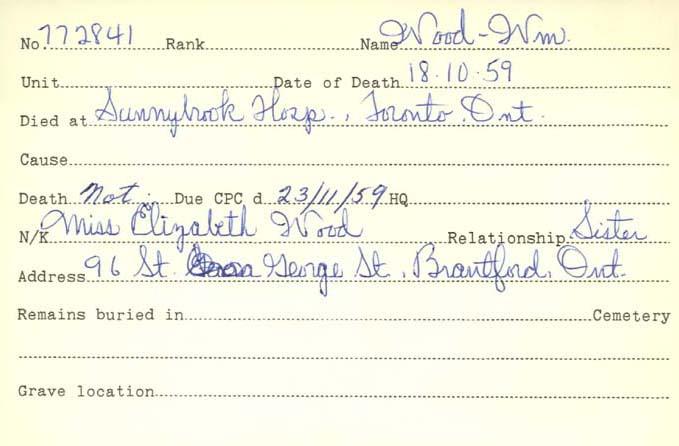 No. 772841 Rank Name Wood - Wm.
Unit Date of Death 18.10.59
Died at Sunnybrook Hosp., Toronto, Ont.
Cause
Death Not. Due CPC d 23/11/59 HQ
N/K Miss Elizabeth Wood Relationship Sister
Address 96 St. George St., Brantford, Ont.
Remains buried in Cemetery
Grave location